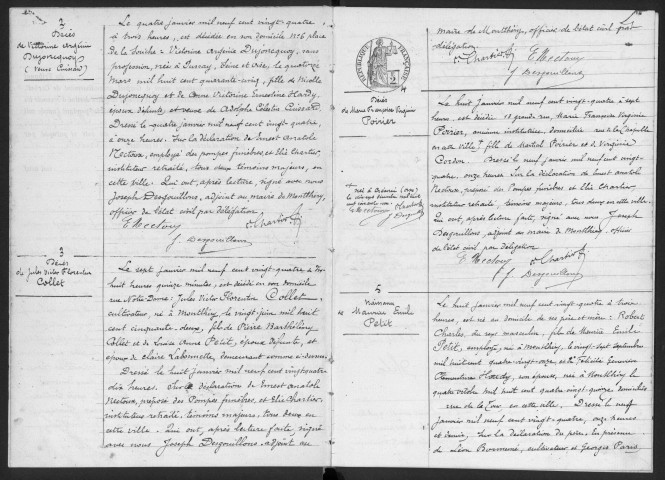 2
Décès
de Victorine Arsénie
Dujoncquoy
(Veuve Cuissard)
Le quatre janvier mil neuf cent vingt-quatre
à trois heures, est décédée en son domicile rue de place
de la Souche : Victorine Arsénie Dujoncquoy, sans
profession, née à Seine et Oise, le quatorze
Mars mil huit cent quarante-cinq, fille de Nicolas
Dujoncquoy et de Victorine Ernestine Hardy,
époux défunts, et veuve de Adolphe Célestin Cuissard.
Dressé le quatre janvier mil neuf cent vingt quatre,
à onze heures. Sur la déclaration de Ernest Anatole
Nectoux, employé des pompes funèbres, et Elie Chartier
instituteur retraité, tous deux témoins majeurs, en
cette ville. Qui ont, après lecture, signé avec nous
Joseph Desgouillons, adjoint au maire de Montlhéry,
officier de l'état civil par délégation.
E Nectoux Chartier
J. Desgouillons
3
Décès
de Jules Victor Florentin
Collet
Le sept janvier mil neuf cent vingt-quatre à
huit heures quinze minutes, est décédé en son domicile
rue Notre Dame : Jules Victor Florentin Collet,
cultivateur, né à Montlhéry, le vingt juin mil huit
cent cinquante-deux, fils de Pierre Barthélémy
Collet et de Louise Petit, époux défunts, et
époux de Claire Labonnelle, demeurant comme ci-dessus.
Dressé le huit janvier mil neuf cent vingt quatre
dix heures. Sur la déclaration de Ernest Anatole
Nectoux, préposé des Pompes funèbres, et Elie Chartier
instituteur retraité, témoins majeurs, tous deux en
cette ville. Qui ont, après lecture faite, signé
avec nous Joseph Desgouillons adjoint au
maire de Montlhéry, officier de l'état civil par
délégation.
Chartier E Nectoux
J Desgouillons
RÉPUBLIQUE FRANÇAISE
4
Décès
de Marie Françoise Virginie
Poirier
Le huit janvier mil neuf cent vingt-quatre à sept
heures, est décédée 17 grande rue, Marie Françoise Virginie
Poirier, ancienne institutrice, domiciliée rue de la Chapelle
en cette ville, fille de Martial Poirier et de Virginie
Cordon. Dressé le neuf janvier mil neuf cent vingt-
quatre onze heures. Sur la déclaration de Ernest Anatole
Nectoux, préposé des Pompes funèbres et Elie Chartier
instituteur retraité, témoins majeurs, tous deux en cette ville.
Qui ont, après lecture faite, signé avec nous Joseph
Desgouillons, adjoint au maire de Montlhéry, officier
de l'état civil par délégation
E Nectoux Chartier
J Desgouillons
5
Naissance
de Maurice Emile
Petit
Le huit janvier mil neuf cent vingt-quatre à trois
heures, est né au domicile de ses père et mère : Robert
Charles, du sexe masculin, fils de Maurice Emile
Petit, employé, né à Montlhéry, le vingt sept septembre
mil huit cent quatre-vingt-onze, et de Félicité
Clémentine Hardy, son épouse, née à Montlhéry le
quatre octobre mil huit cent quatre-vingt-quatorze domiciliés
rue de la Tour, en cette ville. Dressé le neuf
janvier mil neuf cent vingt-quatre, onze heures
et demie, sur la déclaration du père. En présence
de Léon Bonmené, cultivateur et Georges Paris